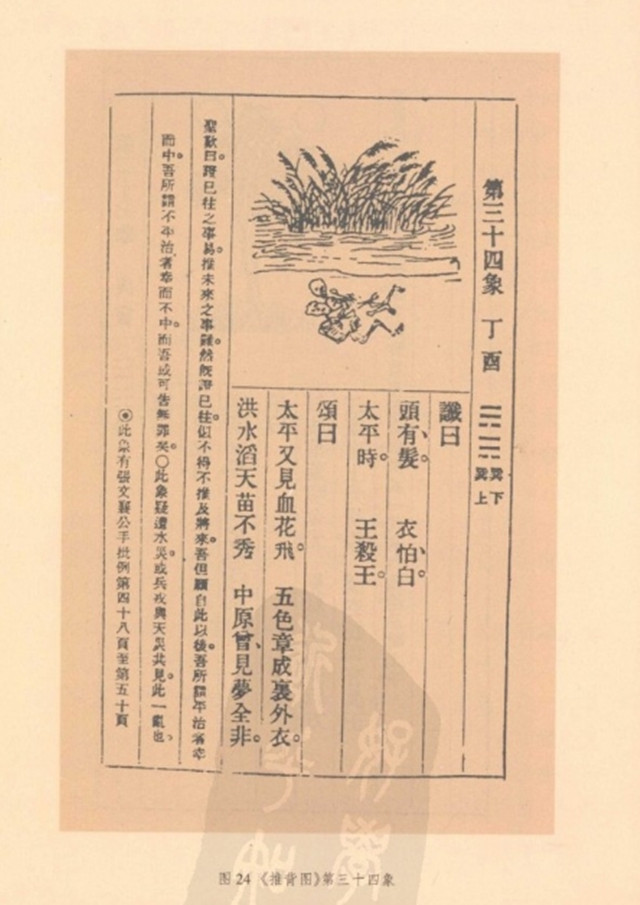 第三十四象 丁酉 巽下巽上
讖曰
頭有髮。 衣怕白。
太平時。 王殺王。
頌曰
太平又見血花飛。 五色章成裏外衣。
洪水滔天苗不秀 中原曾見夢全非。
聖歎曰。證已往之事易。推未來之事難。然既證已往。似不得不推及將來。吾但願自此以後。吾所謂平治者幸
而中。吾所謂不平治者幸而不中。而吾或可告無罪矣。〇此象疑遭水災。或兵戎與天災共見。此一亂也
◉此象有張文襄公手批例第四十八頁至第五十頁
图24《推背图》第三十四象